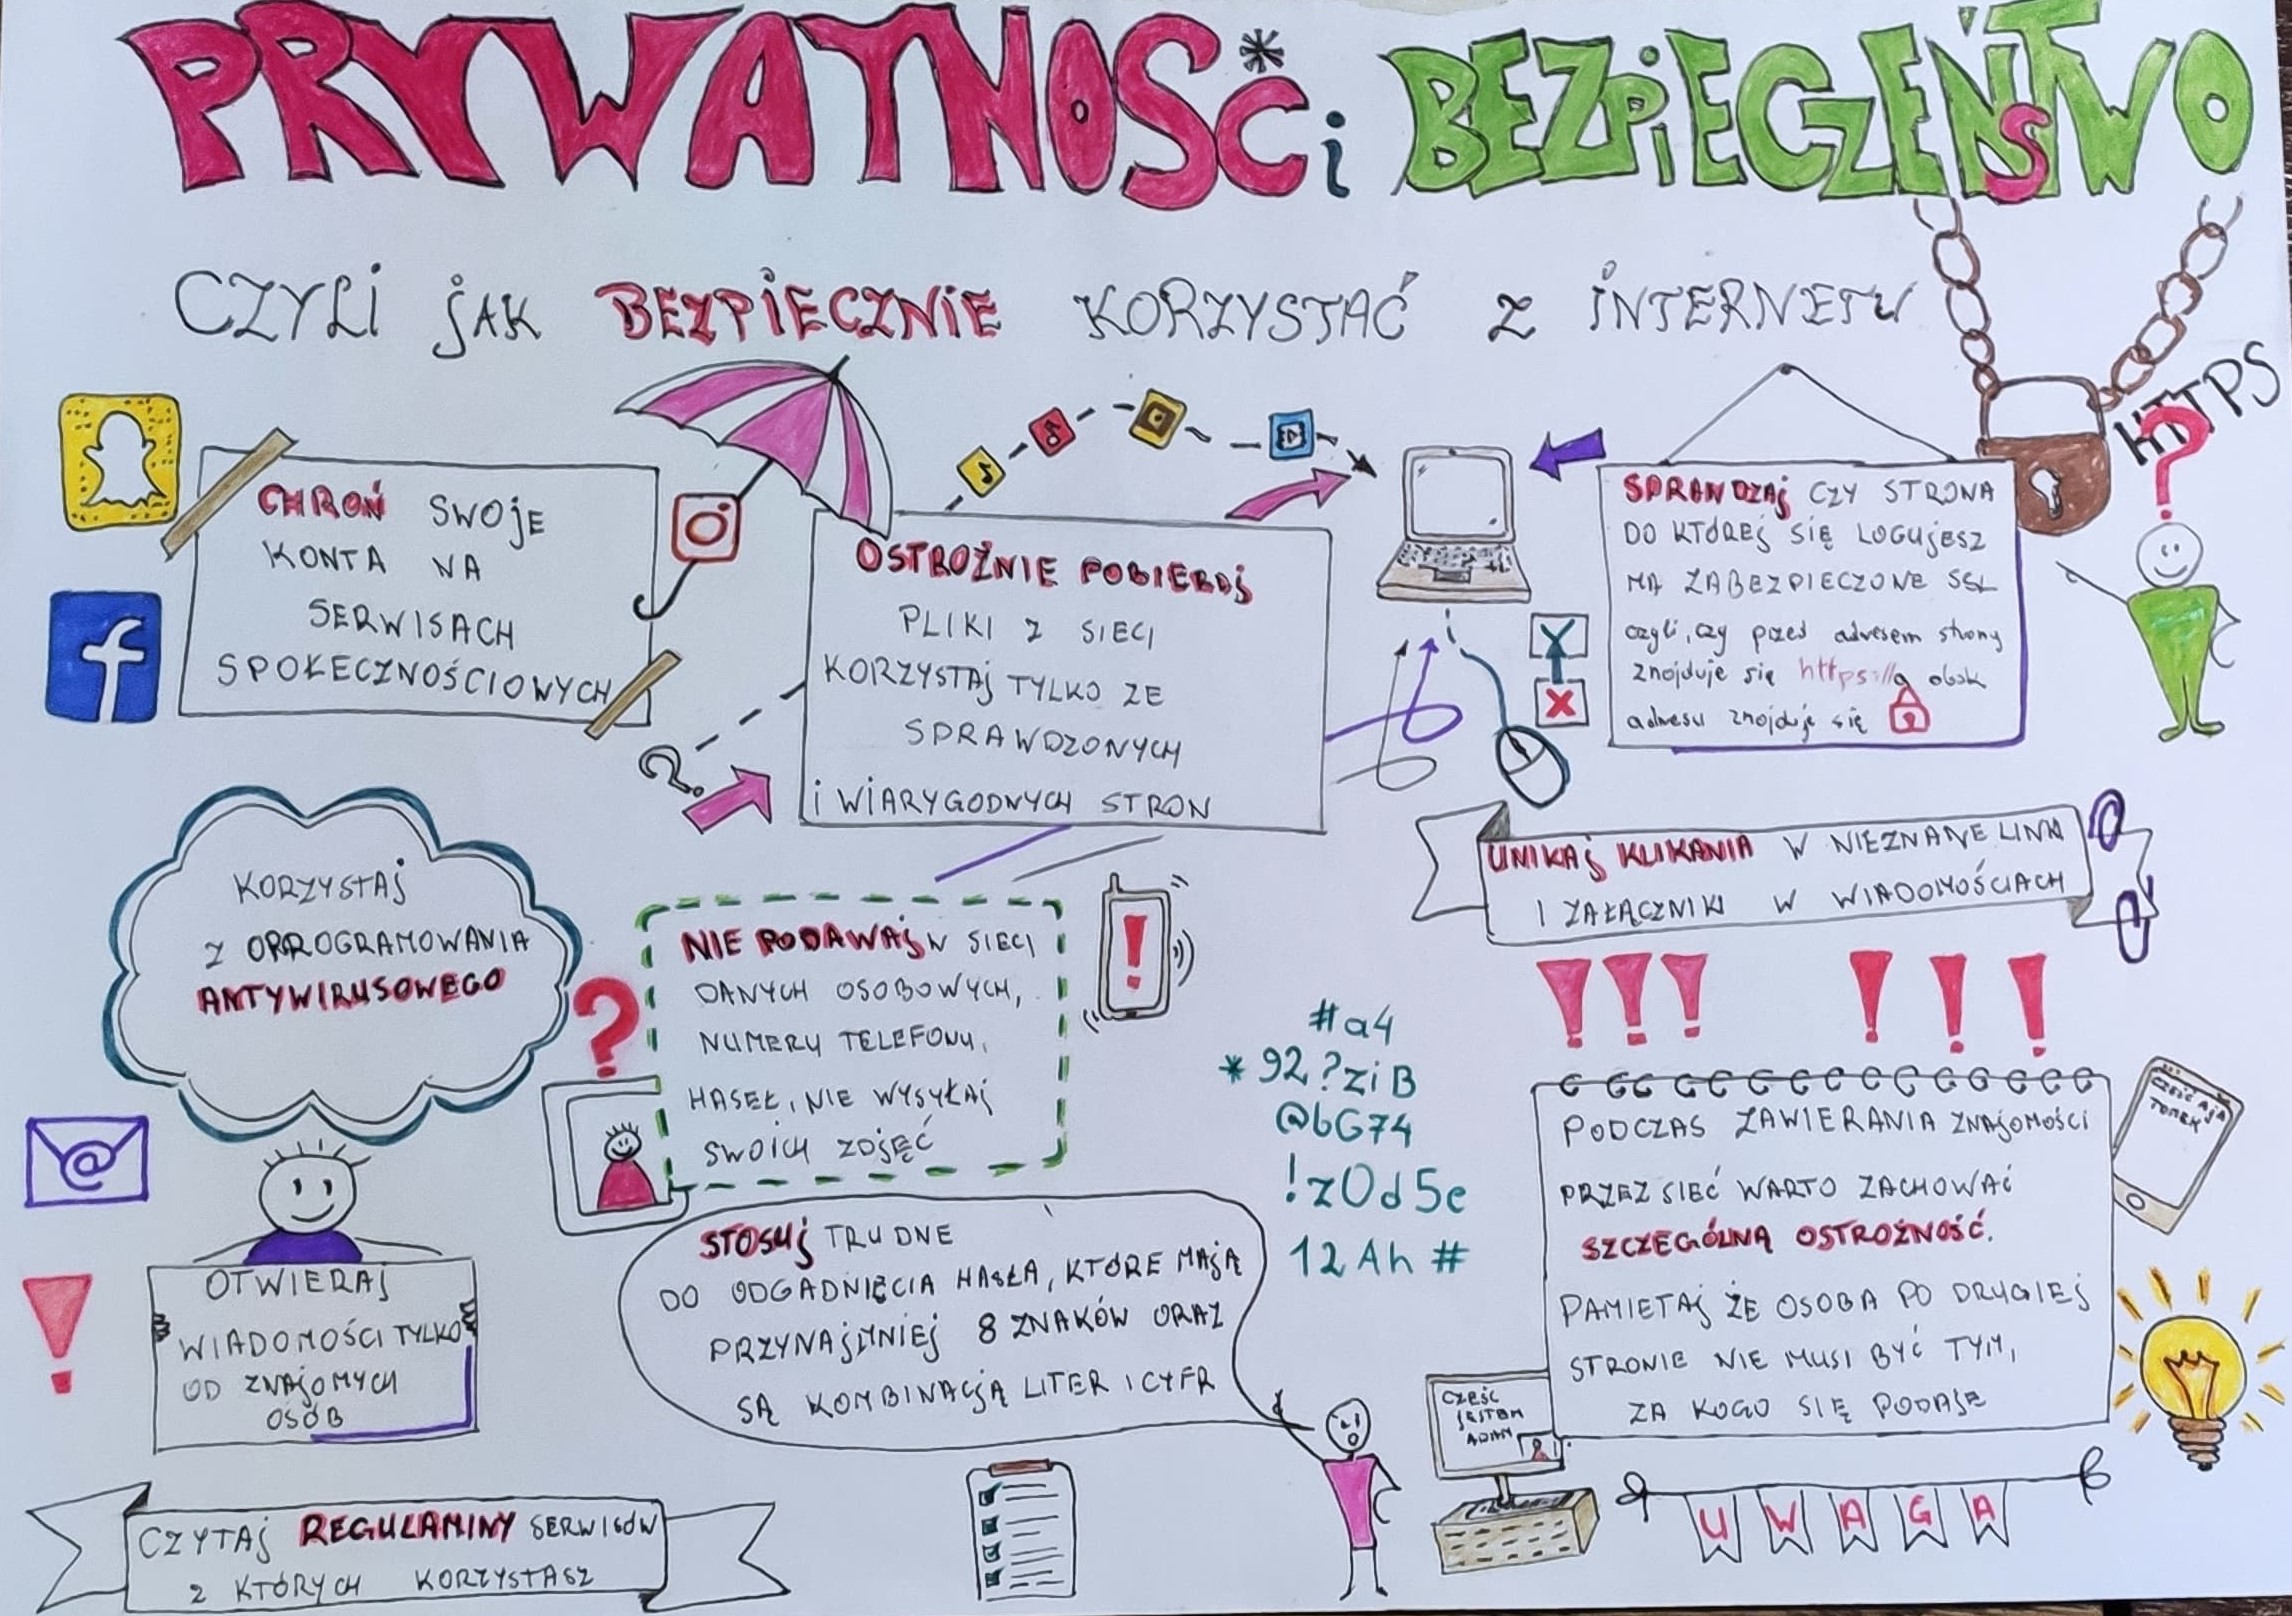 PRYWATNOŚĆ i BEZPIECZEŃSTWO
CZYLI JAK BEZPIECZNIE KORZYSTAĆ Z INTERNETU
CHROŃ SWOJE
KONTA NA
SERWISACH
SPOŁECZNOŚCIOWYCH
OSTROŻNIE POBIERAJ
PLIKI Z SIECI
KORZYSTAJ TYLKO ZE
SPRAWDZONYCH
I WIARYGODNYCH STRON
HTTPS
?
SPRAWDZAJ CZY STRONA
DO KTÓREJ SIĘ LOGUJESZ
MA ZABEZPIECZONE SSL
czyli, czy przed adresem strony
znajduje się https:// a obok
adresu znajduje się
?
UNIKAJ KLIKANIA W NIEZNANE LINKI
I ZAŁĄCZNIKI W WIADOMOŚCIACH
! ! ! ! ! !
KORZYSTAJ
Z OPROGRAMOWANIA
ANTYWIRUSOWEGO
?
NIE PODAWAJ W SIECI
DANYCH OSOBOWYCH,
NUMERU TELEFONU,
HASEŁ, NIE WYSYŁAJ
SWOICH ZDJĘĆ
!
#a4
*92?ziB
@bG74
!zOd5e
12Ah#
PODCZAS ZAWIERANIA ZNAJOMOŚCI
PRZEZ SIEĆ WARTO ZACHOWAĆ
SZCZEGÓLNĄ OSTROŻNOŚĆ.
PAMIETAJ ŻE OSOBA PO DRUGIEJ
STRONIE NIE MUSI BYĆ TYM,
ZA KOGO SIĘ PODAJE
CZEŚĆ
TOMEK
@
!
OTWIERAJ
WIADOMOŚCI TYLKO
OD ZNAJOMYCH
OSÓB
STOSUJ TRUDNE
DO ODGADNIĘCIA HASŁA, KTÓRE MAJĄ
PRZYNAJMNIEJ 8 ZNAKÓW ORAZ
SĄ KOMBINACJĄ LITER I CYFR
CZEŚĆ
JESTEM
ADAM
UWAGA
CZYTAJ REGULAMINY SERWISÓW
Z KTÓRYCH KORZYSTASZ